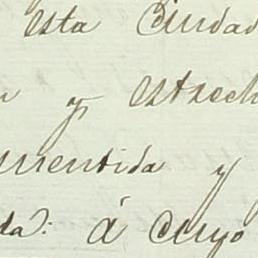 esta Ciudad
y estrech
mentida y
da: á cuyo